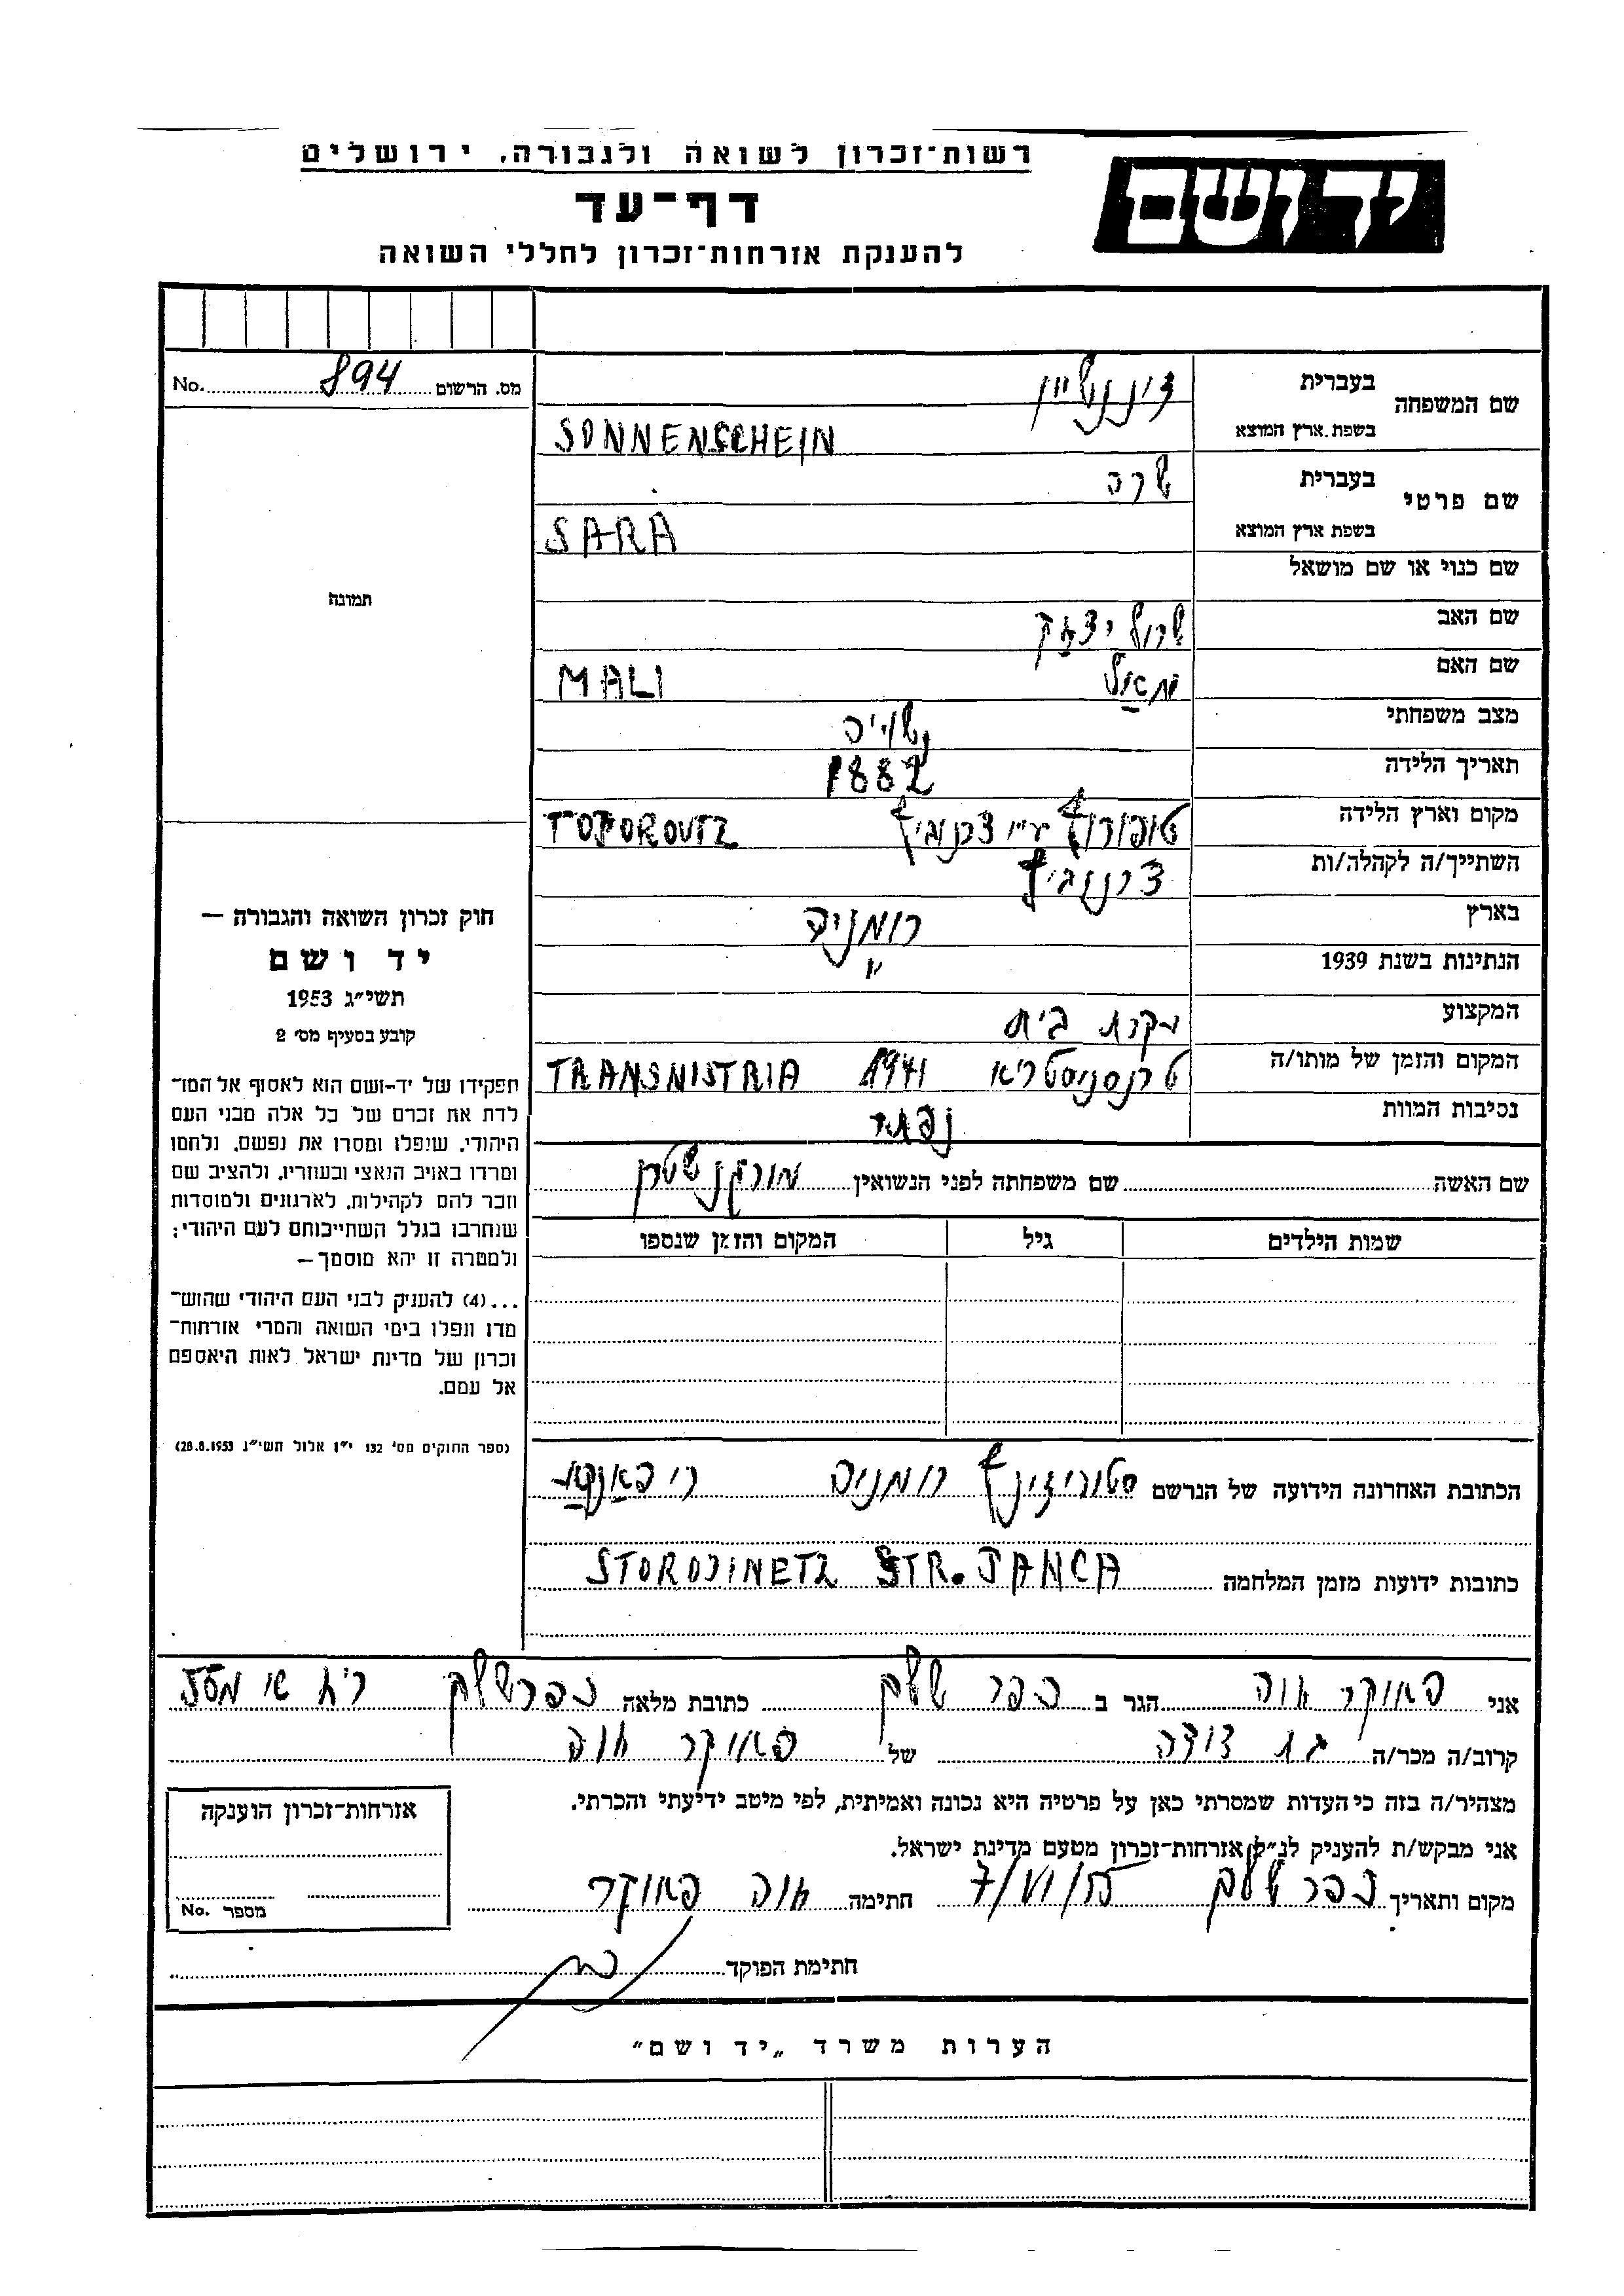 רשות־זכרון לשואה ולגבורה, ירושלים
יד ושם
דף־עד
להענקת אזרחות־זכרון לחללי השואה
מס. הרשום 894 No.
שם המשפחה בעברית זוננשיין
בשפת ארץ המוצא SONNENSCHEIN
שם פרטי בעברית שרה
בשפת ארץ המוצא SARA
תמונה
שם כנוי או שם מושאל
שם האב שרול יצחק
שם האם MALI
מצב משפחתי נשויה
תאריך הלידה 1882
מקום וארץ הלידה טופורוץ ע"י צרנוביץ TOPOROUTZ
השתייך/ה לקהלה/ות צרנוביץ
בארץ רומניה
הנתינות בשנת 1939 "
המקצוע עקרת בית
המקום והזמן של מותו/ה טרנסניסטריא 1941 TRANSNISTRIA
נסיבות המוות
שם האשה שם משפחתה לפני הנשואין מורגנשטרן
שמות הילדים גיל המקום והזמן שנספו
חוק זכרון השואה והגבורה —
יד ושם
תשי״ג 1953
קובע בסעיף מס׳ 2
תפקידו של יד-ושם הוא לאסוף אל המו־
לדת את זכרם של כל אלה מבני העם
היהודי, שנפלו ומסרו את נפשם, נלחמו
ומרדו באויב הנאצי ובעוזריו, ולהציב שם
וזכר להם לקהילות, לארגונים ולמוסדות
שנחרבו בגלל השתייכותם לעם היהודי;
ולמטרה זו יהא מוסמך —
...(4) להעניק לבני העם היהודי שהוש־
מדו ונפלו בימי השואה והמרי אזרחות־
זכרון של מדינת ישראל לאות היאספם
אל עמם.
(ספר החוקים מס׳ 132 י״ז אלול תשי״ג 28.8.1953)
הכתובת האחרונה הידועה של הנרשם סטורוז'ינץ רומניה
כתובות ידועות מזמן המלחמה STOROJINETZ STR. JANCA
אני פאוקר חוה הגר ב כפר שלם כתובת מלאה כפר שלם
קרוב/ה מכר/ה בת דודה של פאוקר חוה
מצהיר/ה בזה כי העדות שמסרתי כאן על פרטיה היא נכונה ואמיתית, לפי מיטב ידיעתי והכרתי.
אני מבקש/ת להעניק לנ״ל אזרחות־זכרון מטעם מדינת ישראל.
מקום ותאריך כפר שלם חתימה חוה פאוקר
אזרחות־זכרון הוענקה
מספר No.
חתימת הפוקד
הערות משרד „יד ושם״